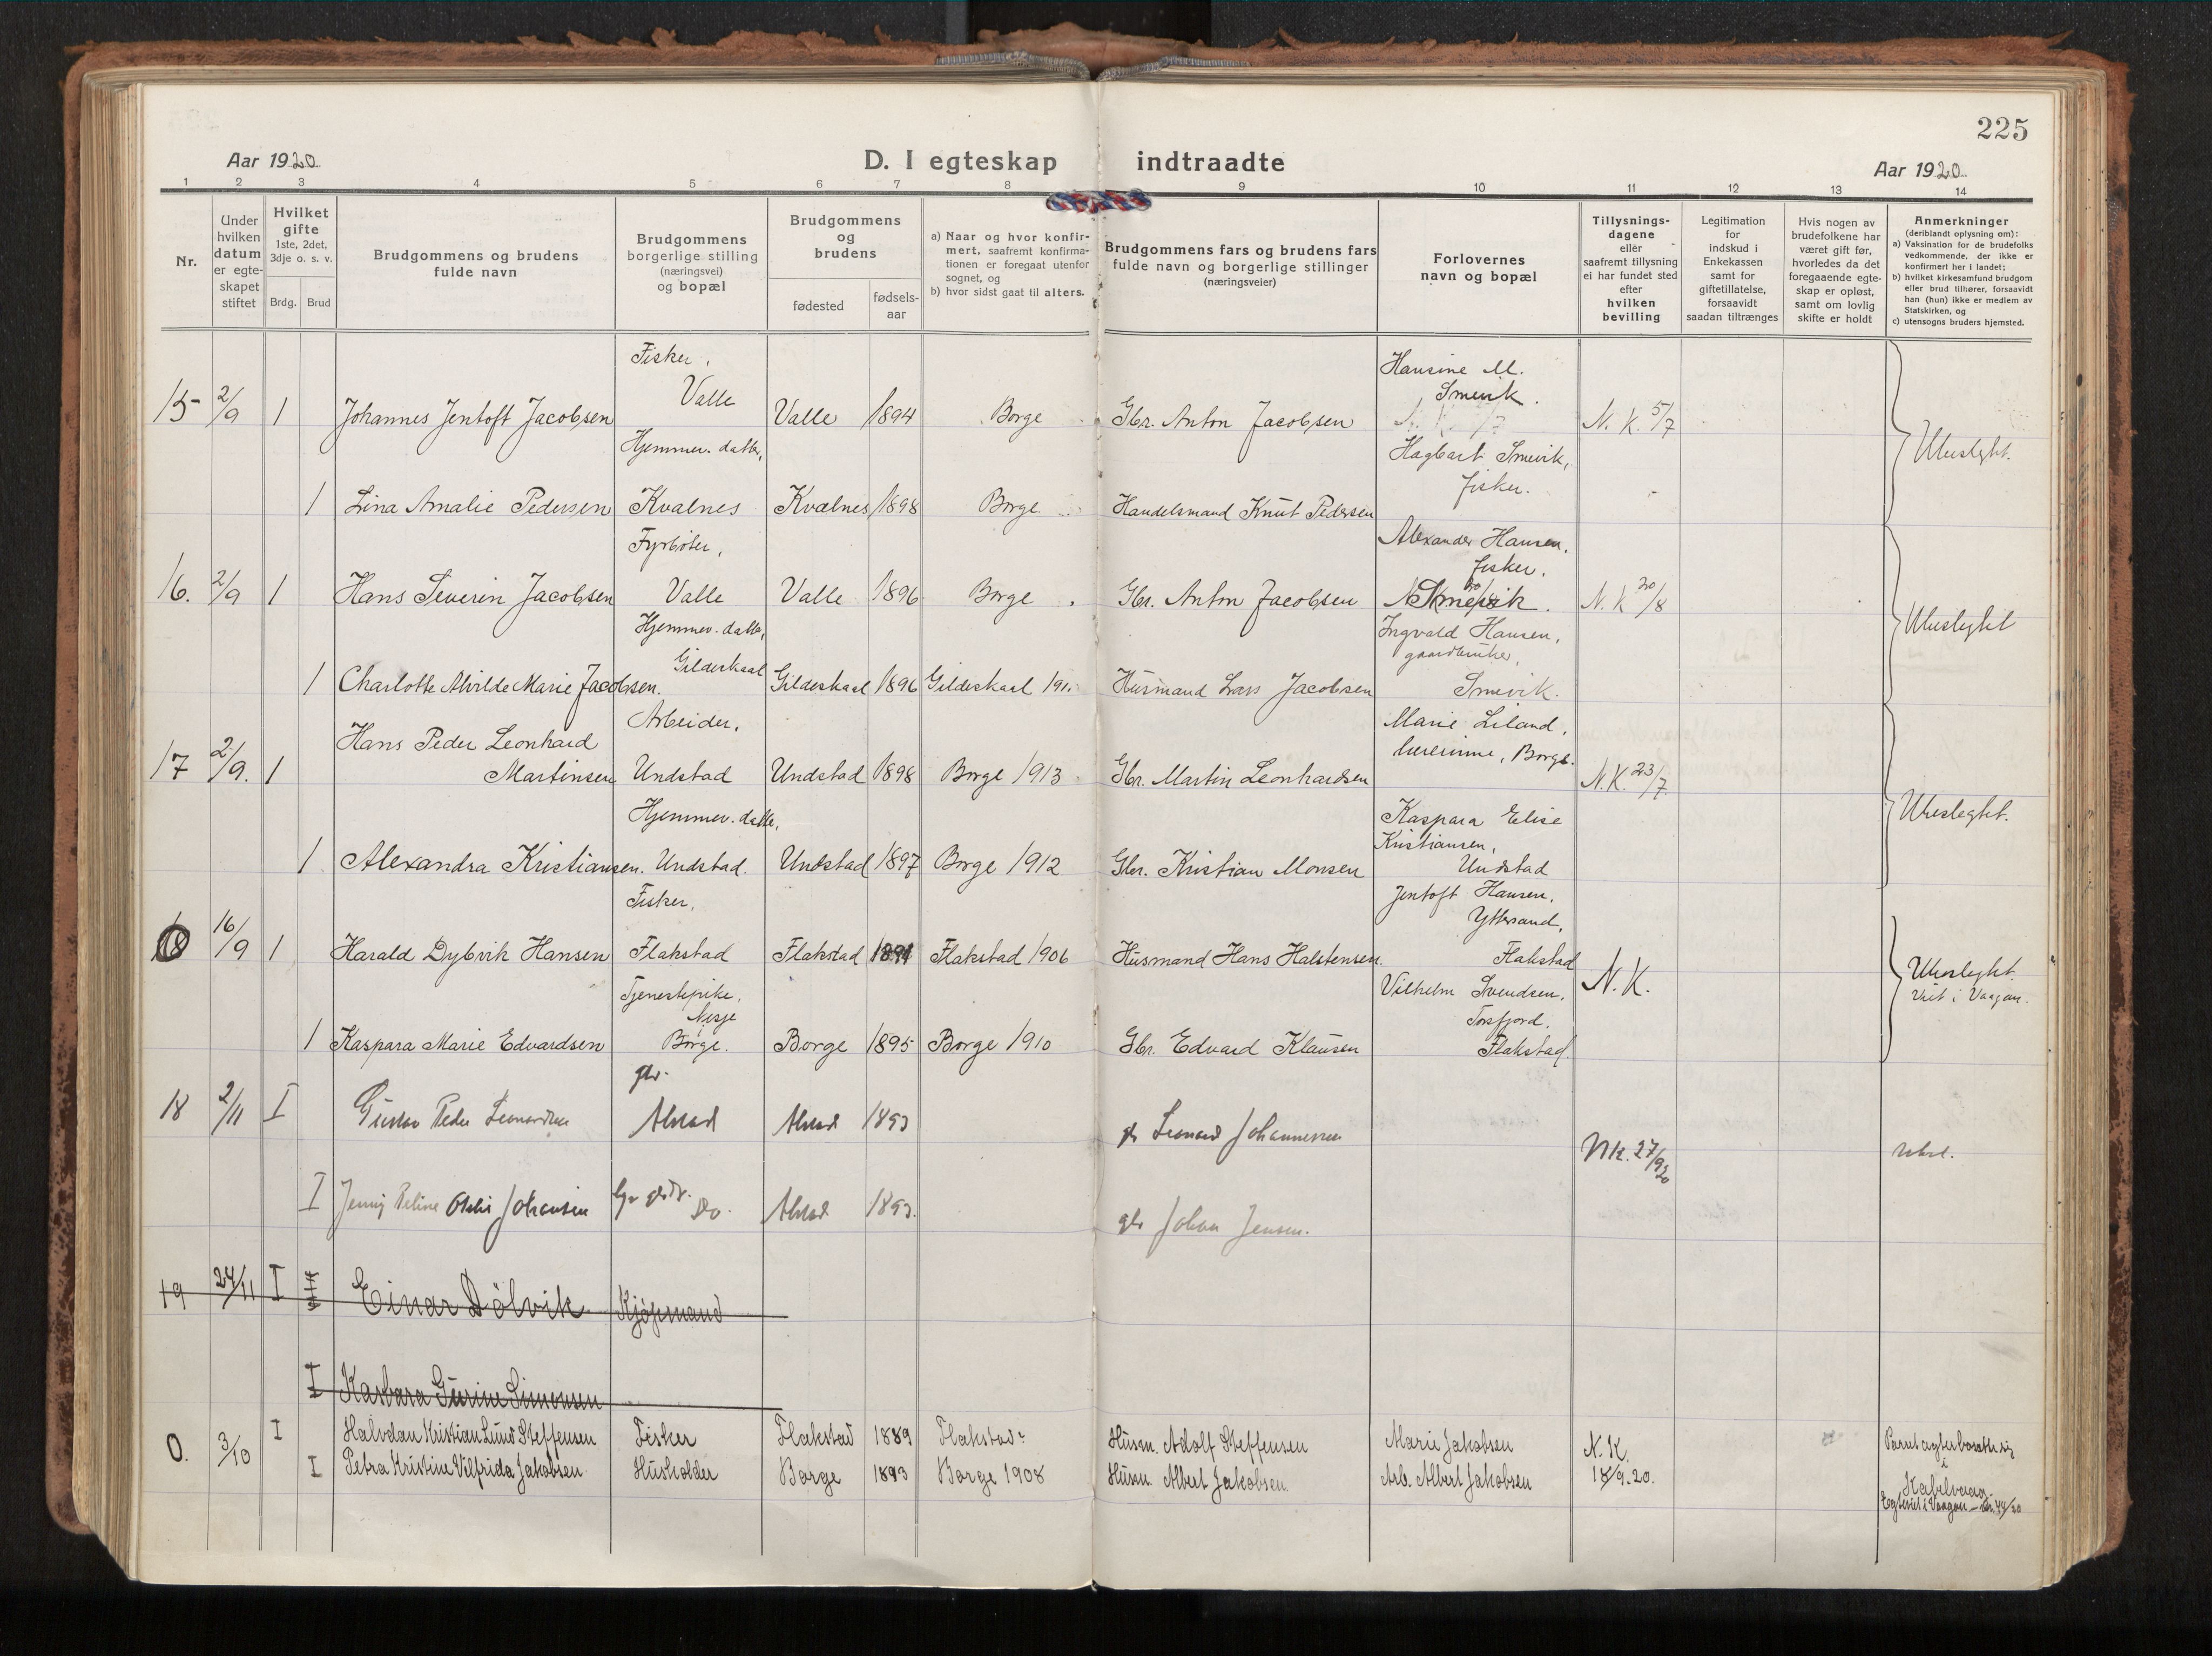 225
Aar 1920
D. I egteskap indtraadte
Aar 1920
1 2 3 4 5 6 7 8 9 10 11 12 13 14
Nr.
Under hvilken datum er egte-skapet stiftet
Hvilket gifte 1ste, 2det, 3dje o. s. v.
Brdg. Brud
Brudgommens og brudens fulde navn
Brudgommens borgerlige stilling (næringsvei) og bopæl
Brudgommens og brudens
fødested
fødsels-aar
a) Naar og hvor konfir-mert, saafremt konfirma-tionen er foregaat utenfor sognet, og
b) hvor sidst gaat til alters.
Brudgommens fars og brudens fars fulde navn og borgerlige stillinger (næringsveier)
Forlovernes navn og bopæl
Tillysnings-dagene eller saafremt tillysning ei har fundet sted efter hvilken bevilling
Legitimation for indskud i Enkekassen samt for giftetillatelse, forsaavidt saadan tiltrænges
Hvis nogen av brudefolkene har været gift før, hvorledes da det foregaaende egte-skap er opløst, samt om lovlig skifte er holdt
Anmerkninger (deriblandt oplysning om):
a) Vaksination for de brudefolks vedkommende, der ikke er konfirmert her i landet;
b) hvilket kirkesamfund brudgom eller brud tilhører, forsaavidt han (hun) ikke er medlem av Statskirken, og
c) utensogns bruders hjemsted.
Fisker,
Valle
Hansine M.
Smevik.
15 2/9 1 Johannes Jentoft Jacobsen Valle 1894 Borge Gbr. Anton Jacobsen N. K. 5/7
Hjemmev. datter,
Hagbart Smevik,
fisker.
Ubeslegtet.
1 Lina Amalie Pedersen Kvalnes Kvalnes 1898 Borge Handelsmand Knut Pedersen
Fyrbøter,
Alexander Hansen,
fisker.
16. 2/9 1 Hans Severin Jacobsen Valle Valle 1896 Borge Gbr. Anton Jacobsen Smevik. N. K 20/8
Hjemmev. datter,
Gildeskaal
Ingvald Hansen,
gaardbruker,
Ubeslegtet
1 Charlotte Alvilde Marie Jacobsen. Gildeskaal 1896 Gildeskaal Husmand Lars Jacobsen Smevik.
Arbeider,
Marie Liland,
lærerinne, Borge.
Hans Peder Leonhard
17 2/9. 1 Martinsen Undstad Undstad 1898 Borge 1913 Gbr. Martin Leonhardsen N. K. 23/7
Hjemmev. datter,
Kaspara Elise
Kristiansen,
Undstad
Ubeslegtet.
1 Alexandra Kristiansen. Undstad. Undstad 1897 Borge 1912 Gbr. Kristian Monsen
Fisker,
Jentoft Hansen,
Yttersand,
Flakstad
16/9 1 Harald Dybvik Hansen Flakstad Flakstad Flakstad 1906 Husmand Hans Halstensen. N. K.
Tjenestepike,
Nesje
Borge.
Vilhelm Svendsen,
Torsfjord,
Flakstad.
Ubeslegtet.
Viet i Vaagan.
1 Kaspara Marie Edvardsen Borge 1895 Borge 1910 Gbr. Edvard Klausen
gbr.
18 2/11 I Gustav Peder Leonardsen Alstad Alstad 1893 gb Leonard Johannessen
NK. 27/9 20
ubesl.
I Jenny Peline Johansen Do. Alstad 1893. gbr Johan Jensen.
19 24/11 I Einar Dölvik Kjöpmand
I Kasbara Gurine Simonsen
0. 3/10 I Halvdan Kristian Lund Steffensen Fisker Flakstad 1889 Flakstad? Husm. Adolf Steffensen Marie Jakobsen N. K.
I Petra Kristine Vilfrida Jakobsen Husholder Borge 1893 Borge 1908 Husm. Albert Jakobsen Arb. Albert Jakobsen 18/9.20.
Parret agter bosætte sig
i
Kabelvaag.
Egteviet i Vaagan - Nr. 44/20